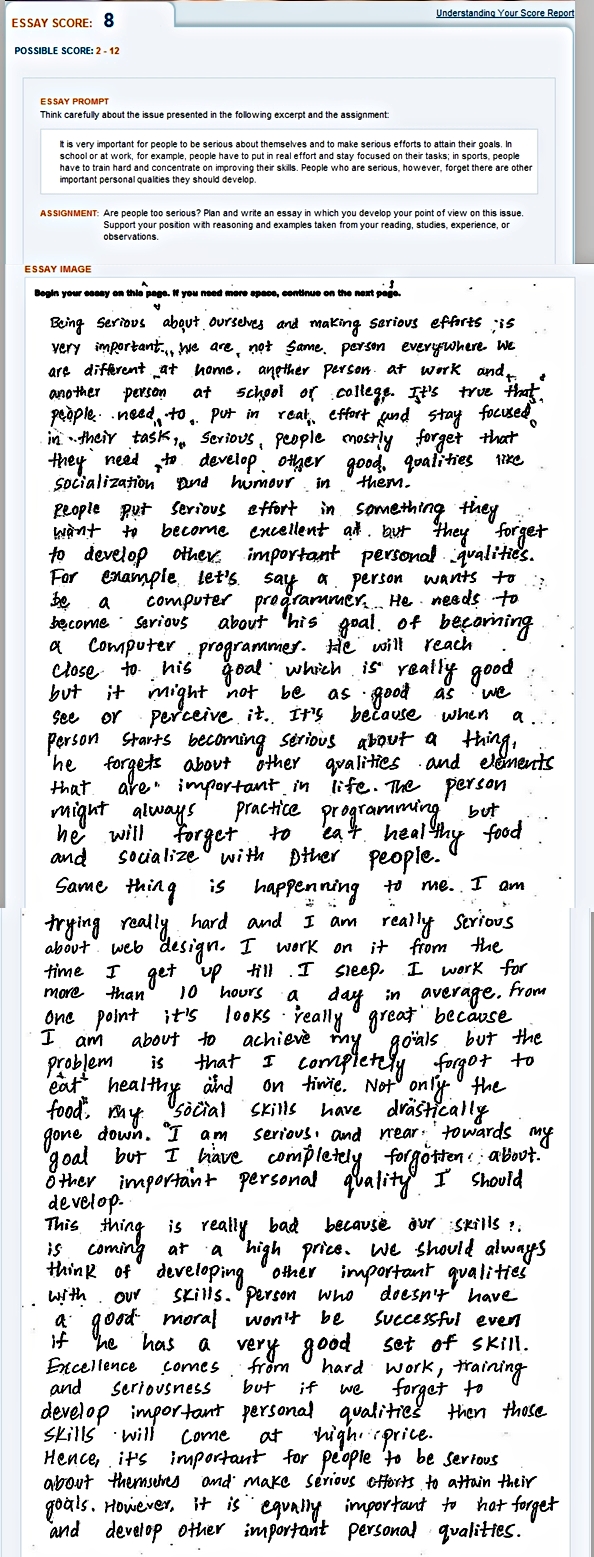 ESSAY SCORE: 8
Understanding Your Score Report
POSSIBLE SCORE: 2 - 12
ESSAY PROMPT
Think carefully about the issue presented in the following excerpt and the assignment:
It is very important for people to be serious about themselves and to make serious efforts to attain their goals. In
school or at work, for example, people have to put in real effort and stay focused on their tasks; in sports, people
have to train hard and concentrate on improving their skills. People who are serious, however, forget there are other
important personal qualities they should develop.
ASSIGNMENT: Are people too serious? Plan and write an essay in which you develop your point of view on this issue.
Support your position with reasoning and examples taken from your reading, studies, experience, or
observations.
ESSAY IMAGE
Begin your essay on this page. If you need more space, continue on the next page.
Being serious about ourselves and making serious efforts is
very important. We are not same person everywhere We
are different at home, another person at work and
another person at school or college. It's true that
people need to put in real effort and stay focused
in their task, serious people mostly forget that
they need to develop other good qualities like
socialization and humour in them.
People put serious effort in something they
want to become excellent at but they forget
to develop other important personal qualities.
For example let's say a person wants to
be a computer programmer. He needs to
become serious about his goal of becoming
a computer programmer. He will reach
close to his goal which is really good
but it might not be as good as we
see or perceive it. It's because when a
person starts becoming serious about a thing,
he forgets about other qualities and elements
that are important in life. The person
might always practice programming but
he will forget to eat healthy food
and socialize with other people.
Same thing is happenning to me. I am
trying really hard and I am really serious
about web design. I work on it from the
time I get up till I sleep. I work for
more than 10 hours a day in average. From
one point it's looks really great because
I am about to achieve my goals but the
problem is that I completely forgot to
eat healthy and on time. Not only the
food, my social skills have drastically
gone down. I am serious and near towards my
goal but I have completely forgotten about
other important personal quality I should
develop.
This thing is really bad because our skills
is coming at a high price. We should always
think of developing other important qualities
with our skills. Person who doesn't have
a good moral won't be successful even
if he has a very good set of skill.
Excellence comes from hard work, training
and seriousness but if we forget to
develop important personal qualities then those
skills will come at high price.
Hence, it's important for people to be serious
about themselves and make serious efforts to attain their
goals. However, it is equally important to not forget
and develop other important personal qualities.